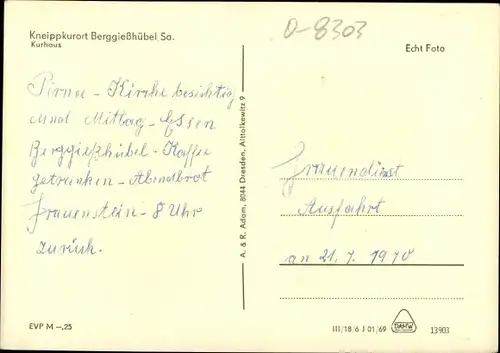 Kneippkurort Berggießhübel Sa.
Kurhaus
O-8303
Echt Foto
Pirna - Kirche besichtig
und Mittag - Essen
Berggießhübel - Kaffee
getrunken - Abendbrot
Frauenstein - 8 Uhr
zurück.
A. & R. Adam, 8044 Dresden, Alttolkewitz 9
Frauendienst
Ausfahrt
am 21. 7. 1970
EVP M -,25
III/18/6 J 01/69
13903